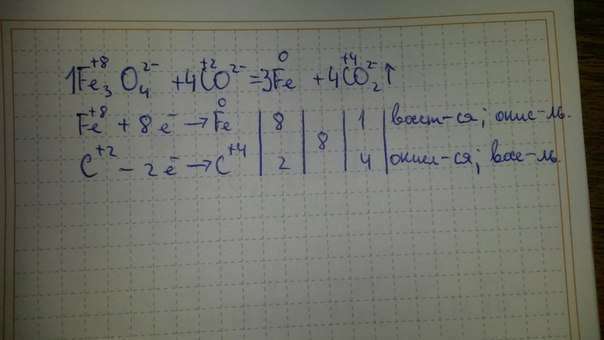 1Fe₃⁺⁸O₄²⁻ + 4C⁺²O²⁻ = 3Fe⁰ + 4C⁺⁴O₂²⁻↑
Fe⁺⁸ + 8e⁻ → Fe⁰ | 8 | 8 | 1 | восст-ся; окис-ль.
C⁺² − 2e⁻ → C⁺⁴ | 2 | | 4 | окисл-ся; вос-ль.